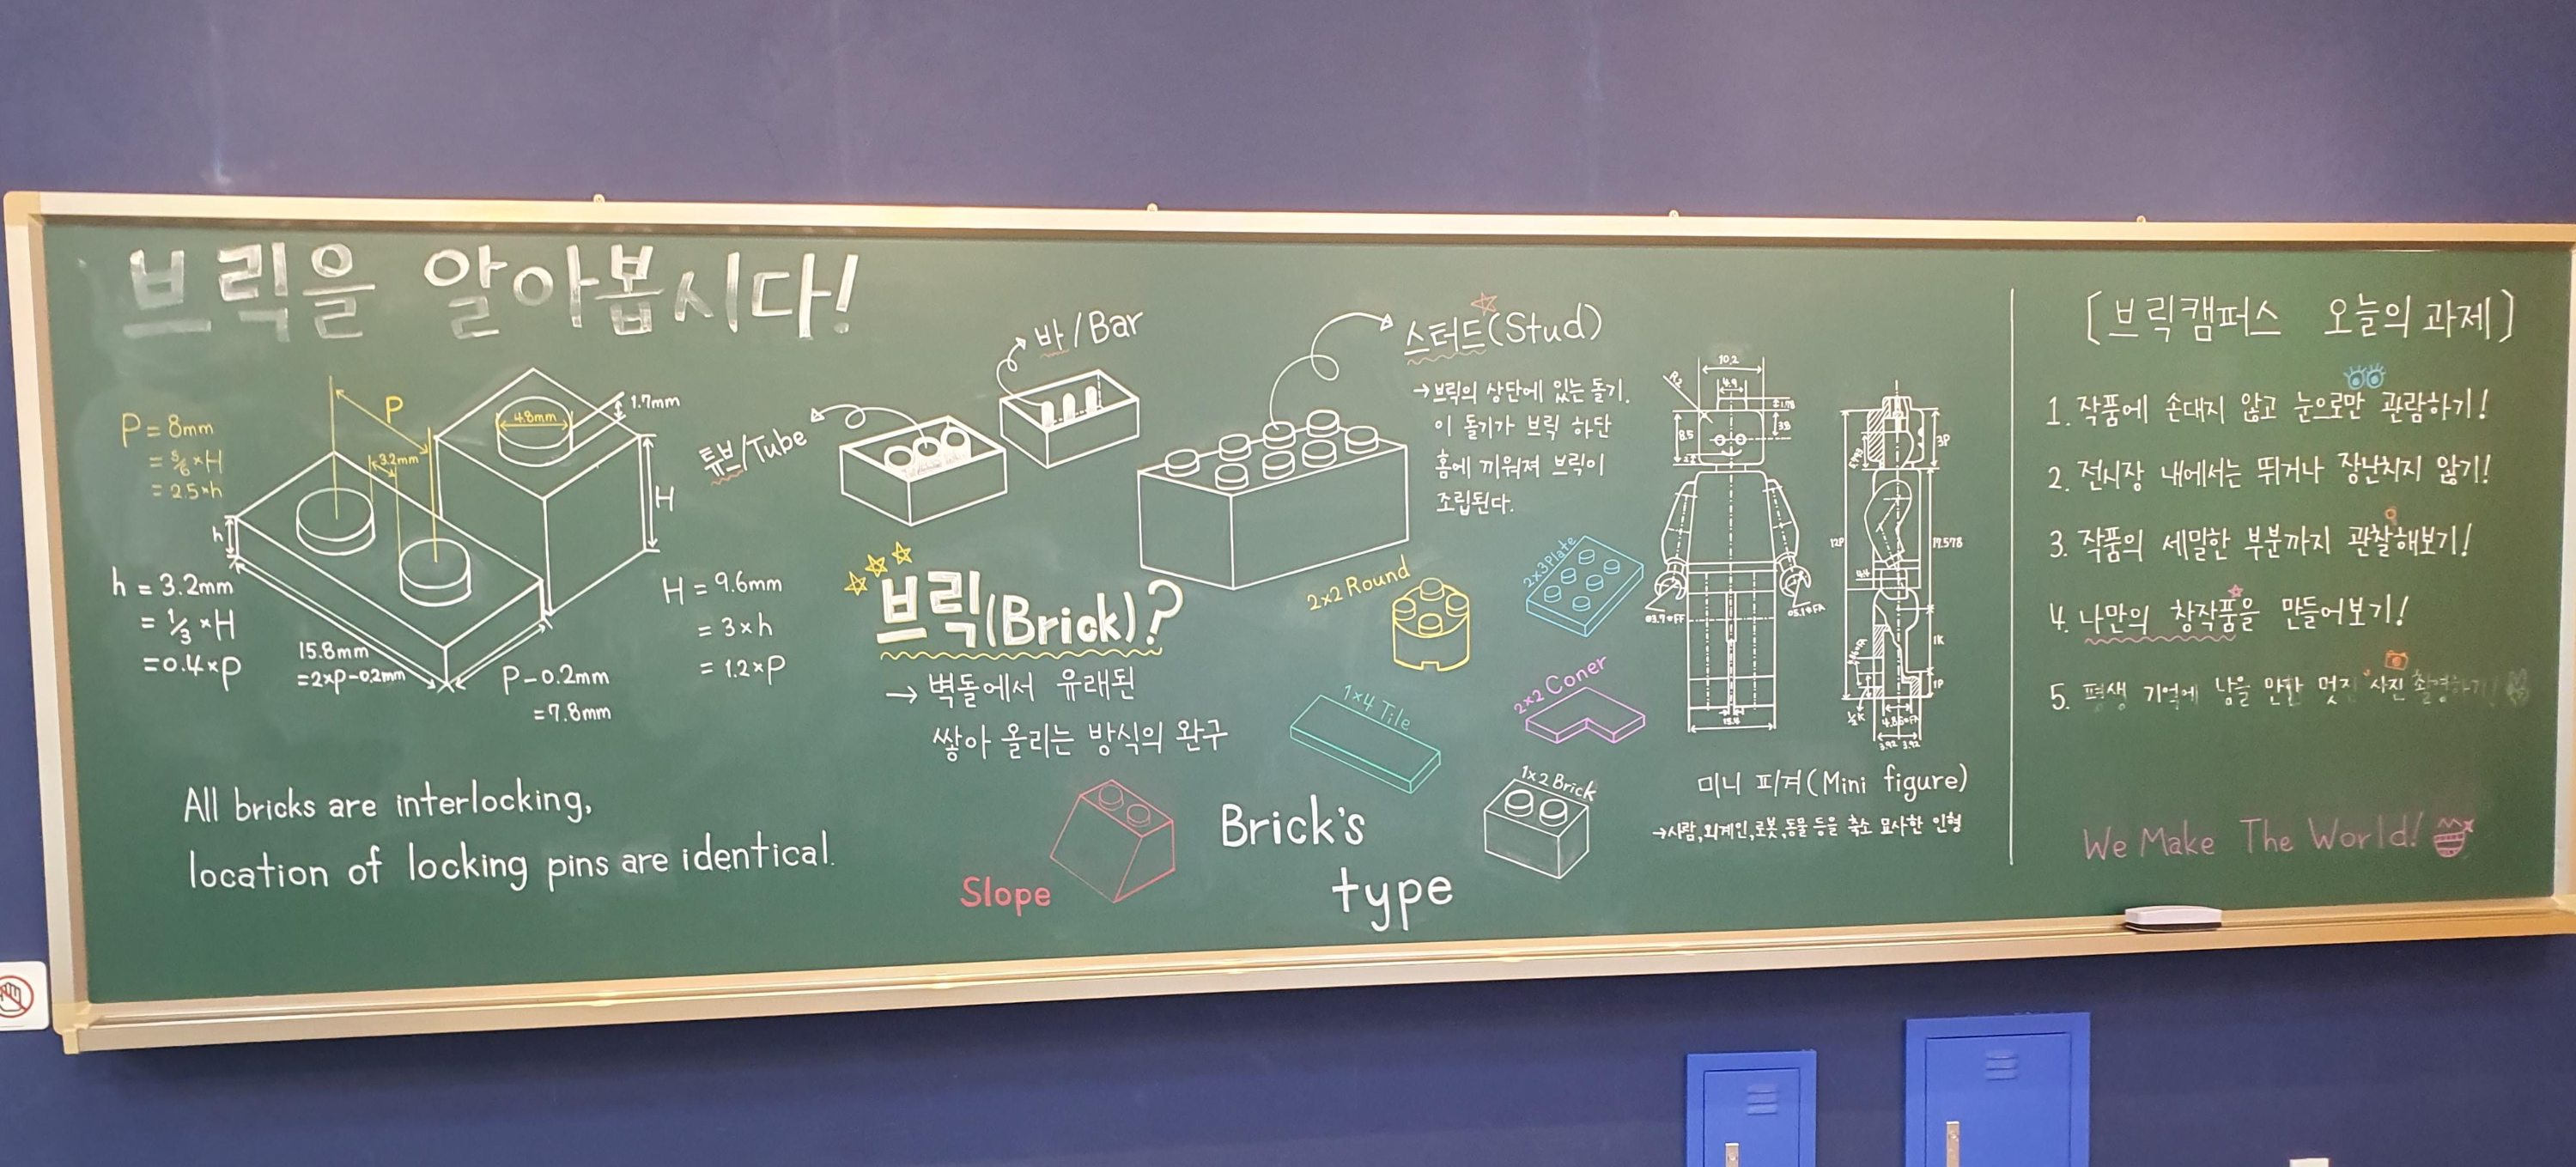 브릭을 알아봅시다!
P = 8mm
= 5/6 × H
= 2.5 × h
P
3.2mm
4.8mm
1.7mm
H
h
h = 3.2mm
= 1/3 × H
= 0.4 × P
15.8mm
= 2×P-0.2mm
P-0.2mm
= 7.8mm
H = 9.6mm
= 3 × h
= 1.2 × P
All bricks are interlocking,
location of locking pins are identical.
튜브/Tube
바/Bar
스터드(Stud)
→브릭의 상단에 있는 돌기.
이 돌기가 브릭 하단
홈에 끼워져 브릭이
조립된다.
브릭(Brick)?
→ 벽돌에서 유래된
쌓아 올리는 방식의 완구
2×2 Round
2×3 Plate
1×4 Tile
2×2 Coner
1×2 Brick
Slope
Brick's
type
10.2
4.9
8.5
3P
12P
17.578
1K
1P
½K
3.92 3.92
미니 피겨(Mini figure)
→사람,외계인,로봇,동물 등을 축소 묘사한 인형
[브릭캠퍼스 오늘의 과제]
1. 작품에 손대지 않고 눈으로만 관람하기!
2. 전시장 내에서는 뛰거나 장난치지 않기!
3. 작품의 세밀한 부분까지 관찰해보기!
4. 나만의 창작품을 만들어보기!
5. 평생 기억에 남을 만한 멋진 사진 촬영하기!
We Make The World!